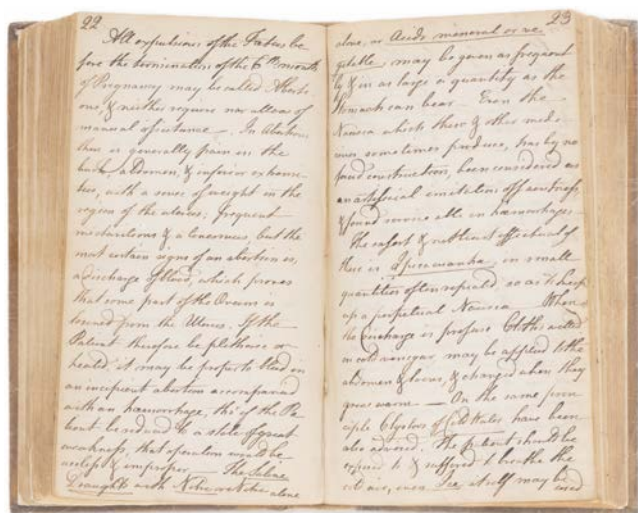 22
All expulsions of the Foetus be
fore the termination of the 6th month
of Pregnancy may be called Aborti
ons, & neither require nor allow of
manual assistance. In abortions
there is generally pain in the
back, abdomen, & inferior extremi
ties, with a sense of weight in the
region of the uterus; frequent
micturitions & a tenesmus but the
most certain signs of an abortion is,
a discharge of blood, which proves
that some part of the Ovum is
loosened from the Uterus. If the
Patient therefore be plethoric or
heated, it may be proper to bleed in
an incipient abortion accompanied
with an haemorrhage, tho' if the Pa
tient be reduced to a state of great
weakness, that operation would be
useless & improper — The Saline
Draughts with Nitre or Nitre alone
23
alone, or Acids mineral or ve
getable may be given as frequent
ly & in as large a quantity as the
Stomach can bear. Even the
Nausea which these & other medi
cines sometimes produce, has by no
bad construction, been considered as
an artificial imitation of faintness,
& found serviceable in haemorrhages.
The safest & not least effectual of
these is Ipecacuanha, in small
quantities often repeated, so as to keep
up a perpetual Nausea. When
the discharge is profuse Cloths wetted
in cold vinegar, may be applied to the
abdomen & loins, & changed when they
grow warm — On the same prin
ciple Clysters of cold Water have been
also advised. The patient should be
exposed to & suffered to breathe the
cold air, even Ice itself may be
used